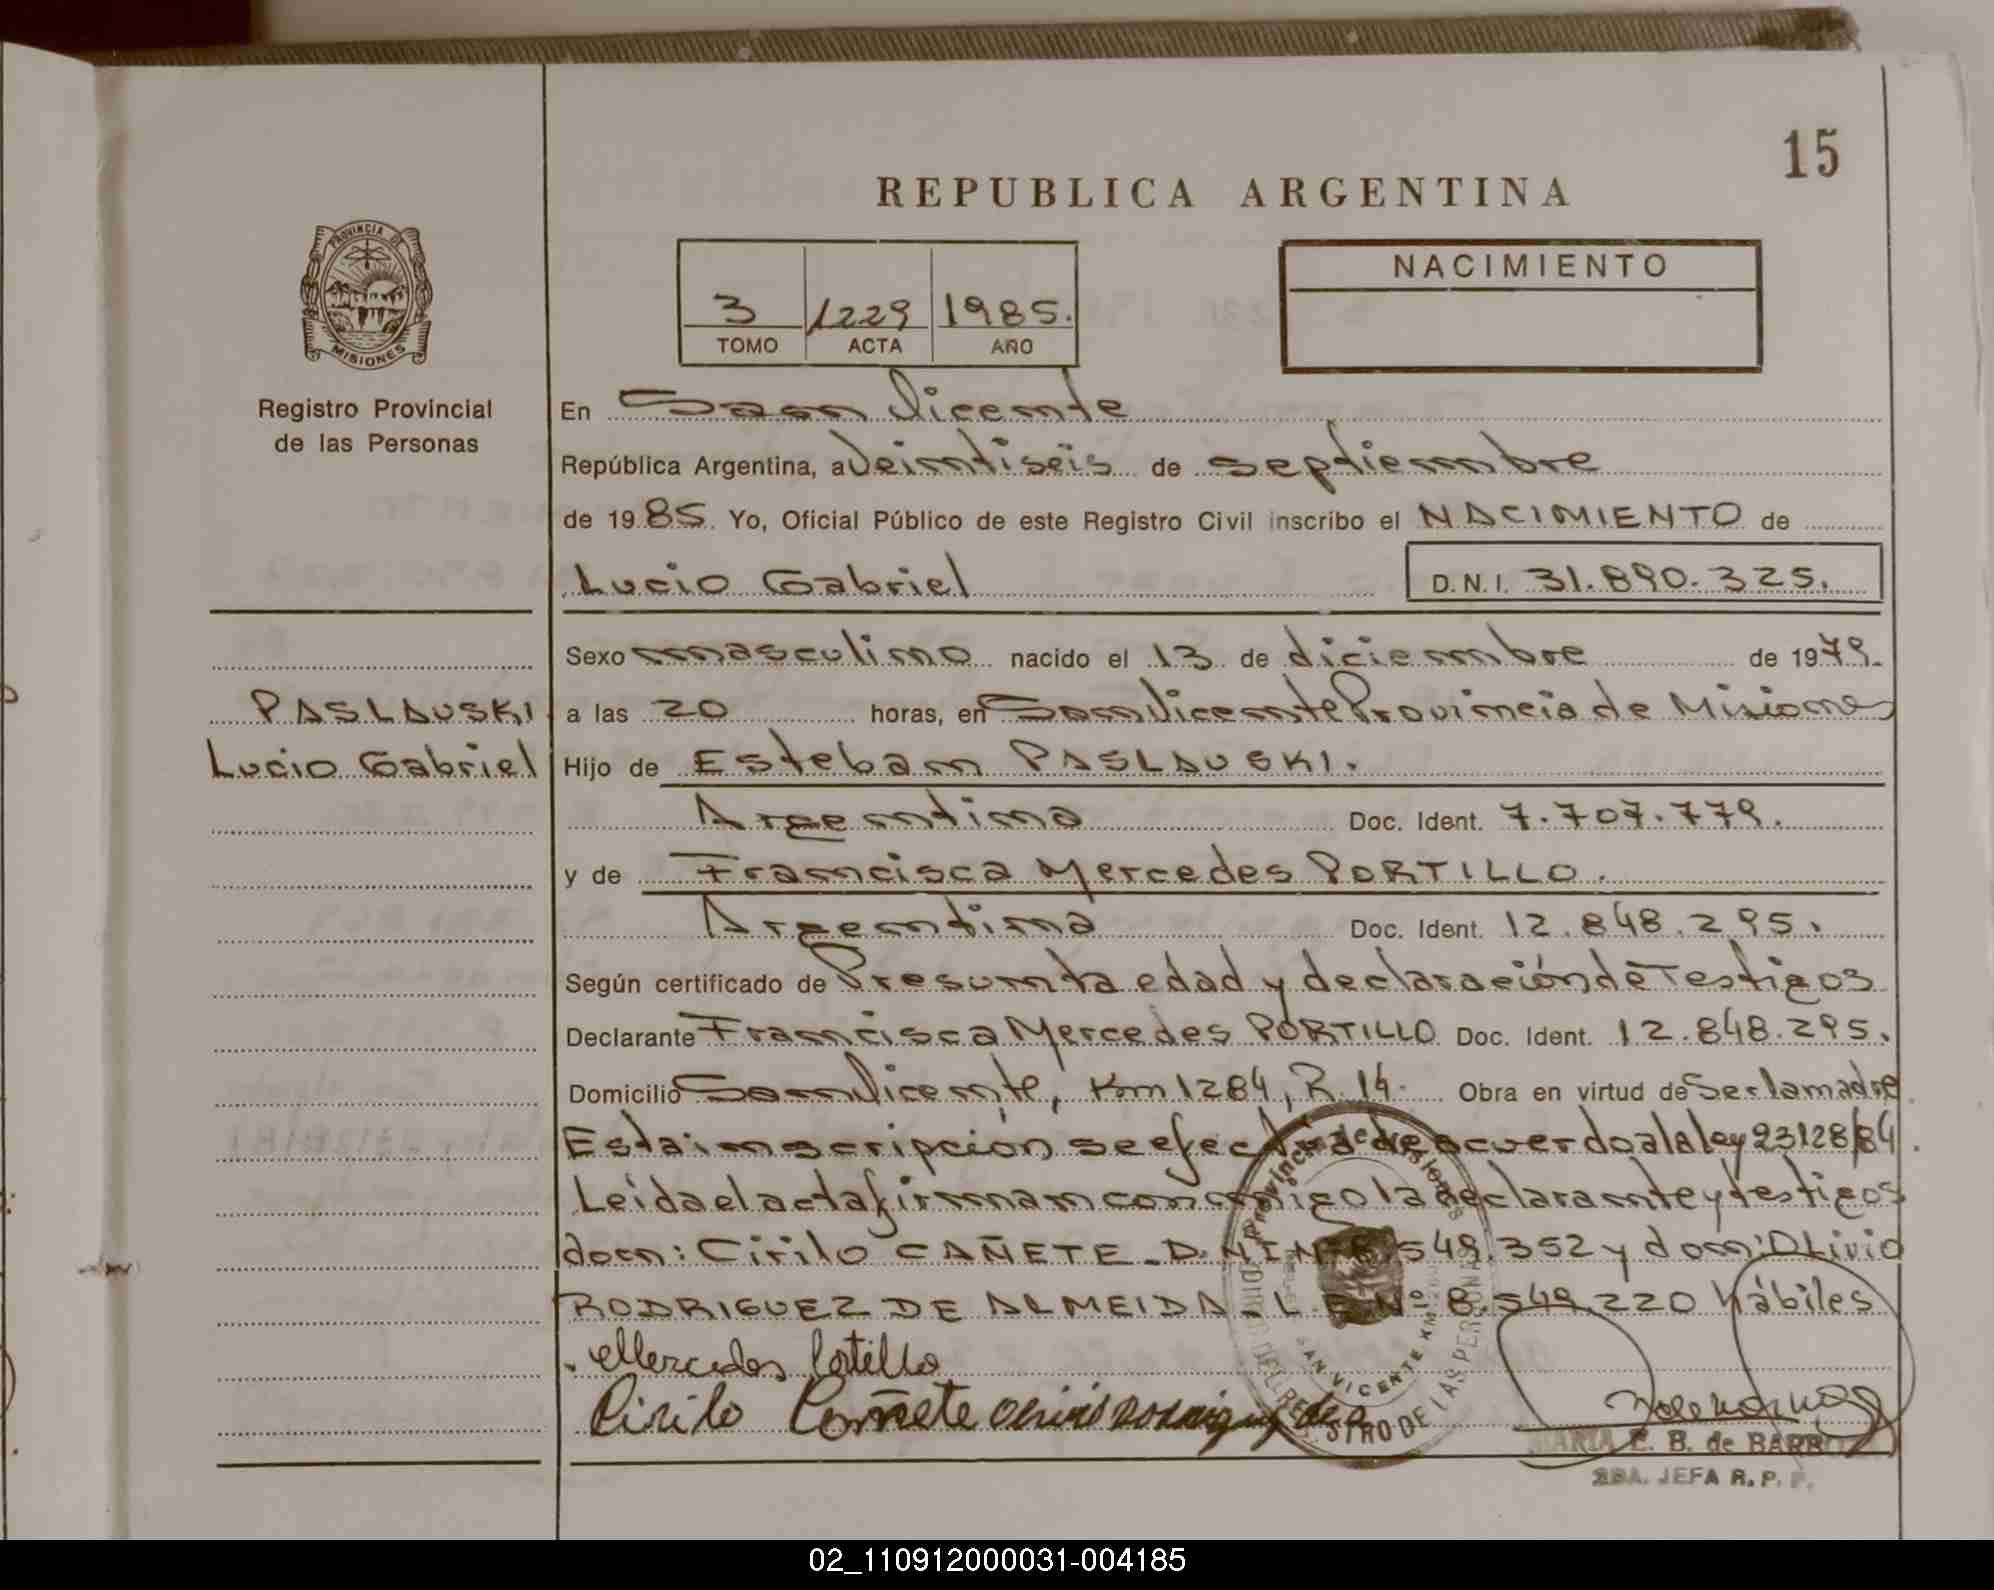 15
REPUBLICA ARGENTINA
PROVINCIA DE
MISIONES
Registro Provincial
de las Personas
3 1229 1985.
TOMO ACTA AÑO
NACIMIENTO
En San Vicente
República Argentina, a Veintiseis de septiembre
de 1985. Yo, Oficial Público de este Registro Civil inscribo el NACIMIENTO de
Lucio Gabriel D.N.I. 31.890.325.
Sexo masculino nacido el 13 de diciembre de 1979.
PASLAUSKI
Lucio Gabriel
a las 20 horas, en San Vicente Provincia de Misiones
Hijo de Esteban PASLAUSKI.
Argentina Doc. Ident. 7.707.779.
y de Francisca Mercedes PORTILLO.
Argentina Doc. Ident. 12.848.295.
Según certificado de Presunta edad y declaración de Testigos
Declarante Francisca Mercedes PORTILLO Doc. Ident. 12.848.295.
Domicilio San Vicente, Km 1284, R. 14. Obra en virtud de Ser la madre.
Esta inscripción se efectúa de acuerdo a la ley 23128/84.
Leída el acta firman conmigo la declarante y testigos
don: Cirilo CAÑETE - D.N.I.Nº 549.352 y don: OLivio
RODRIGUEZ DE ALMEIDA. L.E Nº 8.549.220 hábiles
Mercedes Portillo
Cirilo Cañete
Provincia de Misiones
SAN VICENTE
REGISTRO DE LAS PERSONAS
MARIA E. B. de
2DA. JEFA R. P. P.
02_110912000031-004185